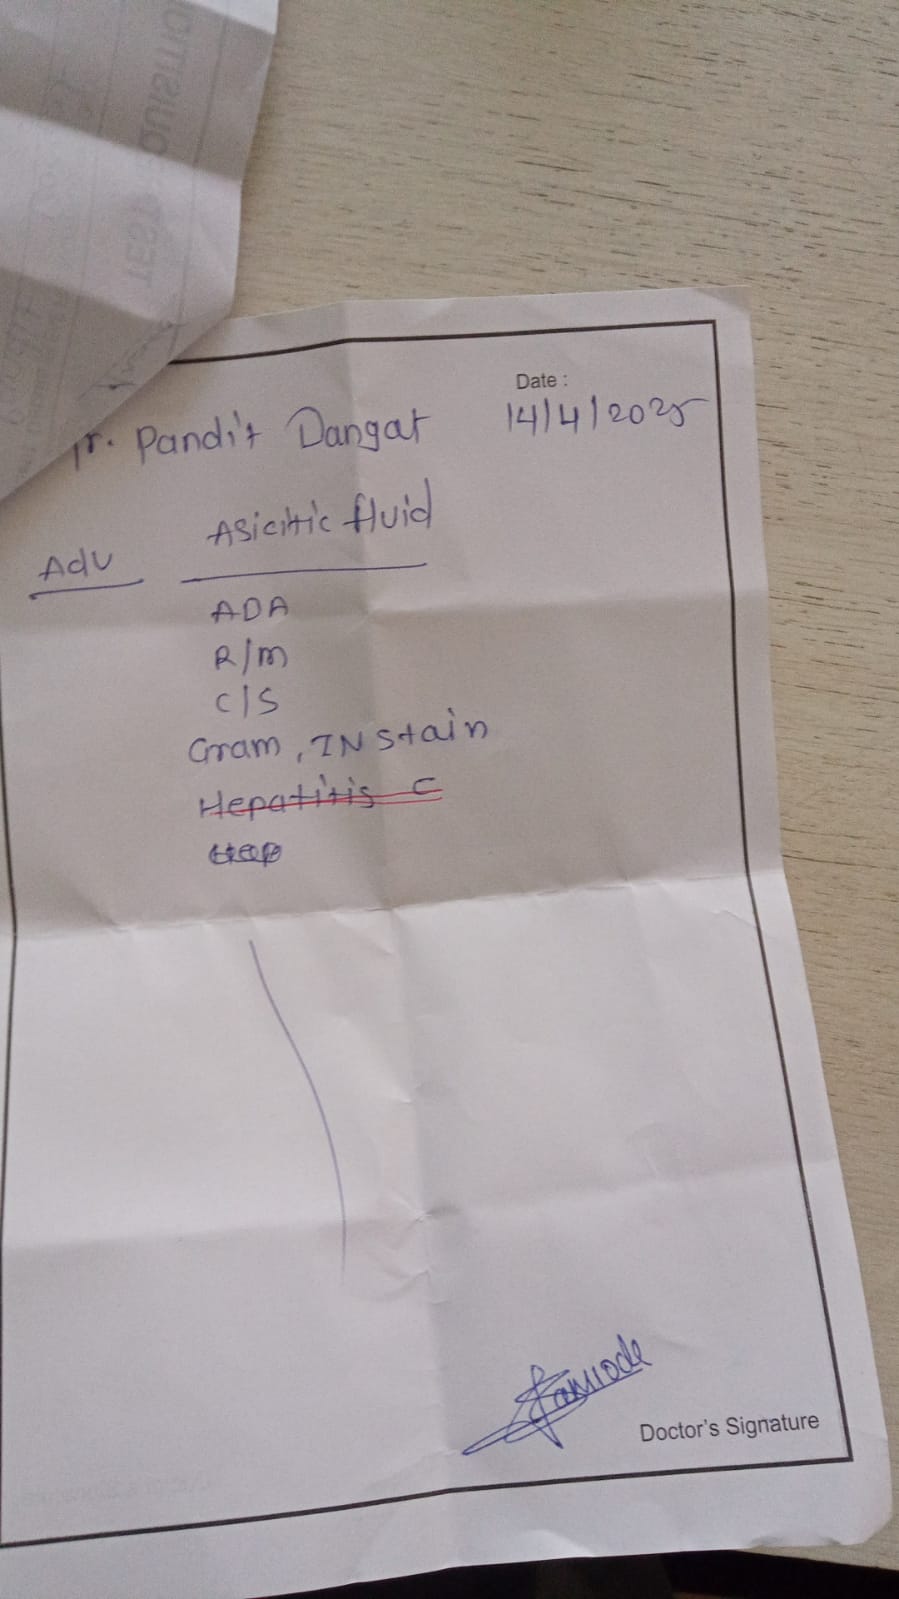 Date :
Pr. Pandit Dangat 14/4/2025
Asicitic fluid
Adv
ADA
R/m
C/S
Gram, ZN Stain
Hepatitis C
Doctor's Signature